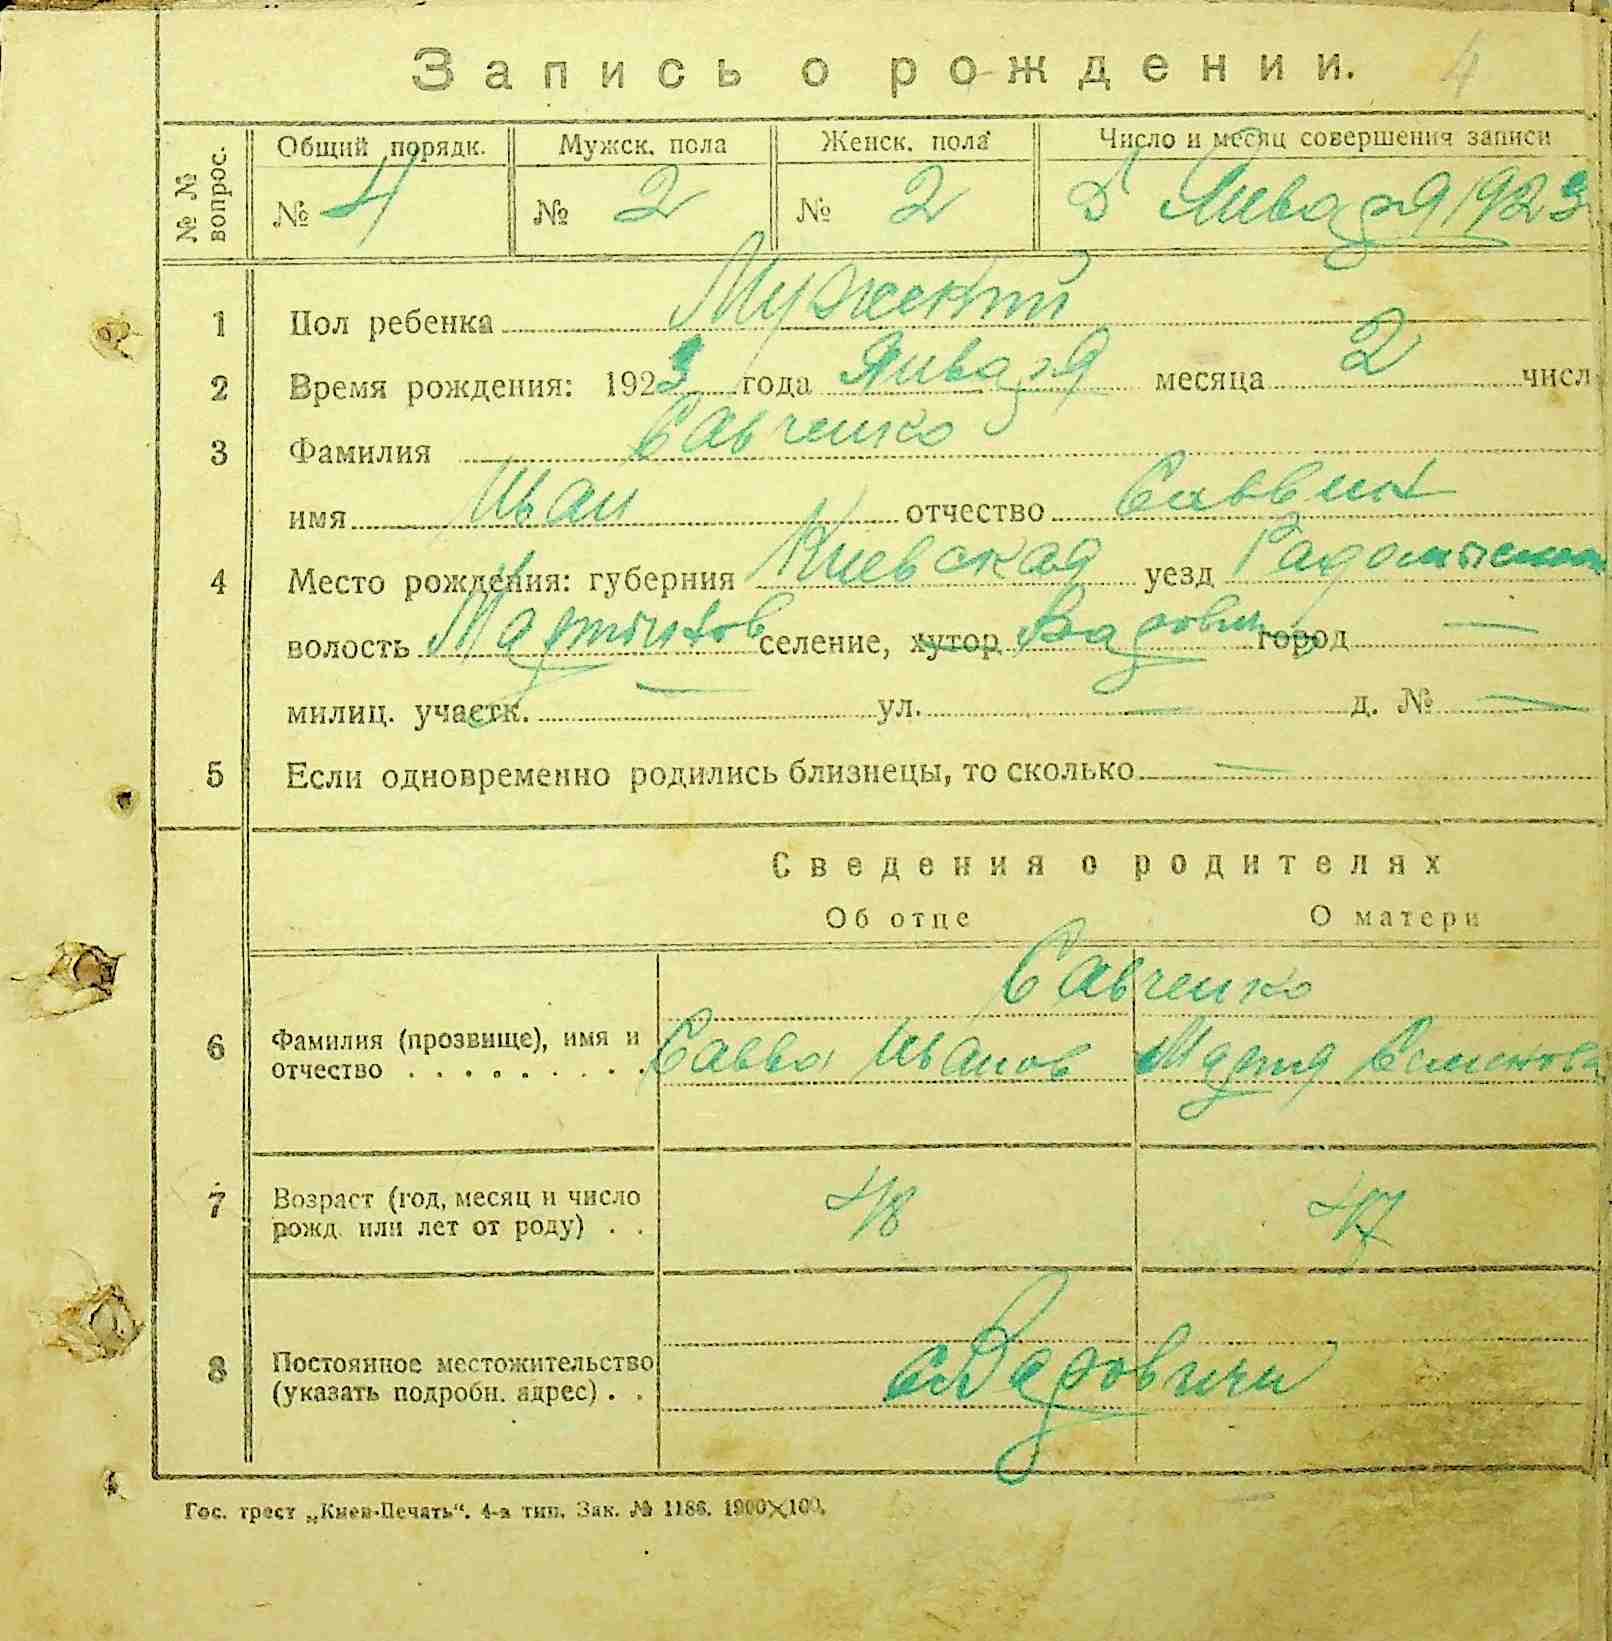 Запись о рождении. 4
№ № вопрос. Общий порядк. Мужск. пола Женск. пола Число и месяц совершения записи
№ 4 № 2 № 2 5 Января 1923
1 Пол ребенка Мужский
2 Время рождения: 1923 года Января месяца 2 числ
3 Фамилия Савченко
имя Иван отчество Саввин
4 Место рождения: губерния Киевская уезд Радомысл
волость Мартынов селение, хутор Варовичи город —
милиц. участк. — ул. — д. № —
5 Если одновременно родились близнецы, то сколько —
Сведения о родителях
Об отце О матери
Савченко
6 Фамилия (прозвище), имя и отчество . . . . . . . . . Савва Иванов Мария Семенова
7 Возраст (год, месяц и число рожд. или лет от роду) . . 48 47
8 Постоянное местожительство (указать подробн. адрес) . . с Варовичи
Гос. трест „Киев-Печать“. 4-а тип. Зак. № 1186. 1900×100.